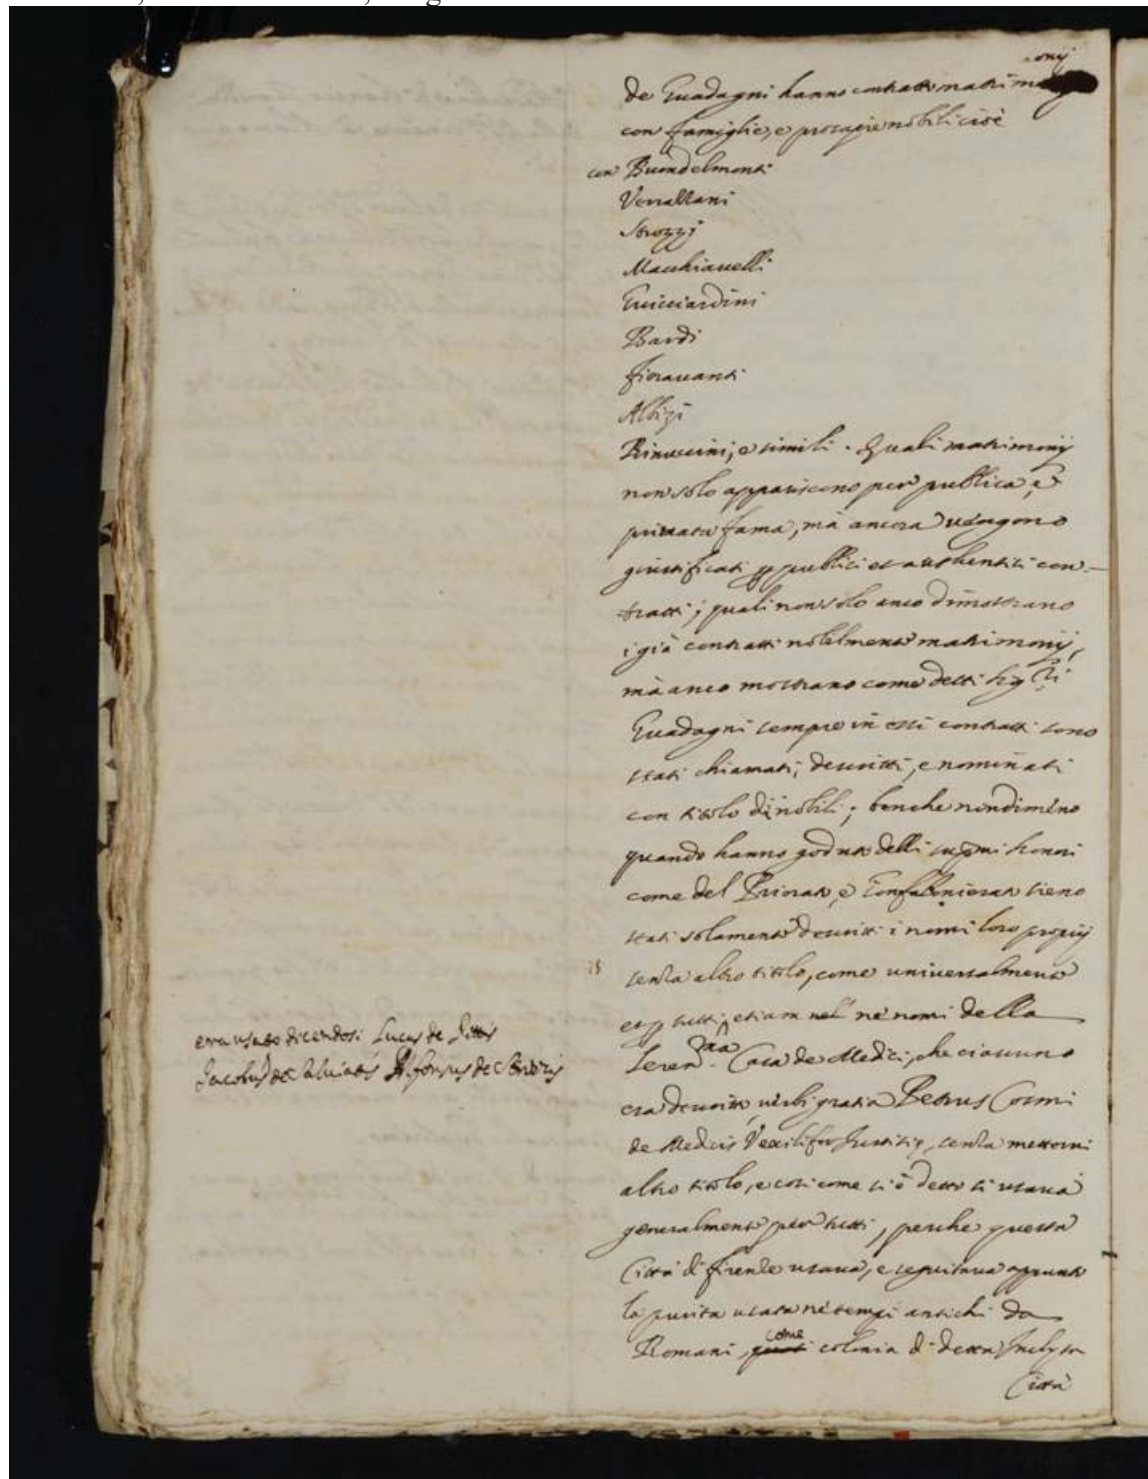 onij
de Guadagni hanno contratto matrimo
con famiglie, e prosapie nobili cioè
con Buondelmonti
Verrazzani
Strozzj
Macchiauelli
Guicciardini
Bardi
fiorauanti
Albizi
Rinuccini, e simili. Quali matrimonij
non solo appariscono per publica e
priuata fama, mà ancora uengono
giustificati publici et authentici con-
tratti; quali non solo anco dimostrano
i già contratti nobilmente matrimonij,
mà anco mostrano come detti
Guadagni sempre in essi contratti sono
stati chiamati, descritti, e nominati
con titolo di nobili; benche nondimeno
quando hanno goduto delli honori
come del Priorato, e Confalonierato sieno
stati solamente descritti i nomi loro proprij
senza altro titolo, come uniuersalmente
tutti, etiam nel ne nomi della
Seren.ma Casa de Medici, che ciascuno
era descritto uerbi gratia Petrus Cosmi
de Medicis Vexilifer Justitię, senza metterui
altro titolo, e cosi come si è detto si usaua
generalmente per tutti, perche questa
Città di firenze usaua, e seguitaua appunto
la purita usata ne tempi antichi da
Romani, come colonia di detta Inclyta
Città
era usato dicendosi Lucas de Pittis
Jacobus de Saluiatis de